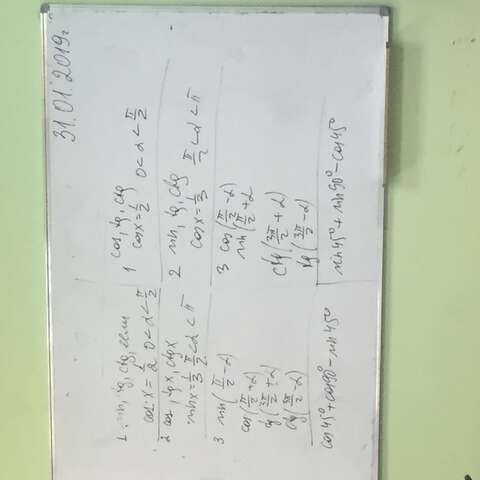 31.01.2019г
1. sin, tg, ctg, если
cos x = 1/2 0 < α < π/2
2 cos, tg x, ctg x
sin x = 1/3 π/2 < α < π
3 sin(π/2 - α)
cos(π/2 + α)
tg(3π/2 + α)
ctg(3π/2 - α)
cos 45° + cos 90° - sin 45°
1 cos, tg, ctg
cos x = 1/2 0 < α < π/2
2 sin, tg, ctg
cos x = 1/3 π/2 < α < π
3 cos(π/2 - α)
sin(π/2 + α
ctg(3π/2 + α)
tg(3π/2 - α)
sin 45° + sin 90° - cos 45°